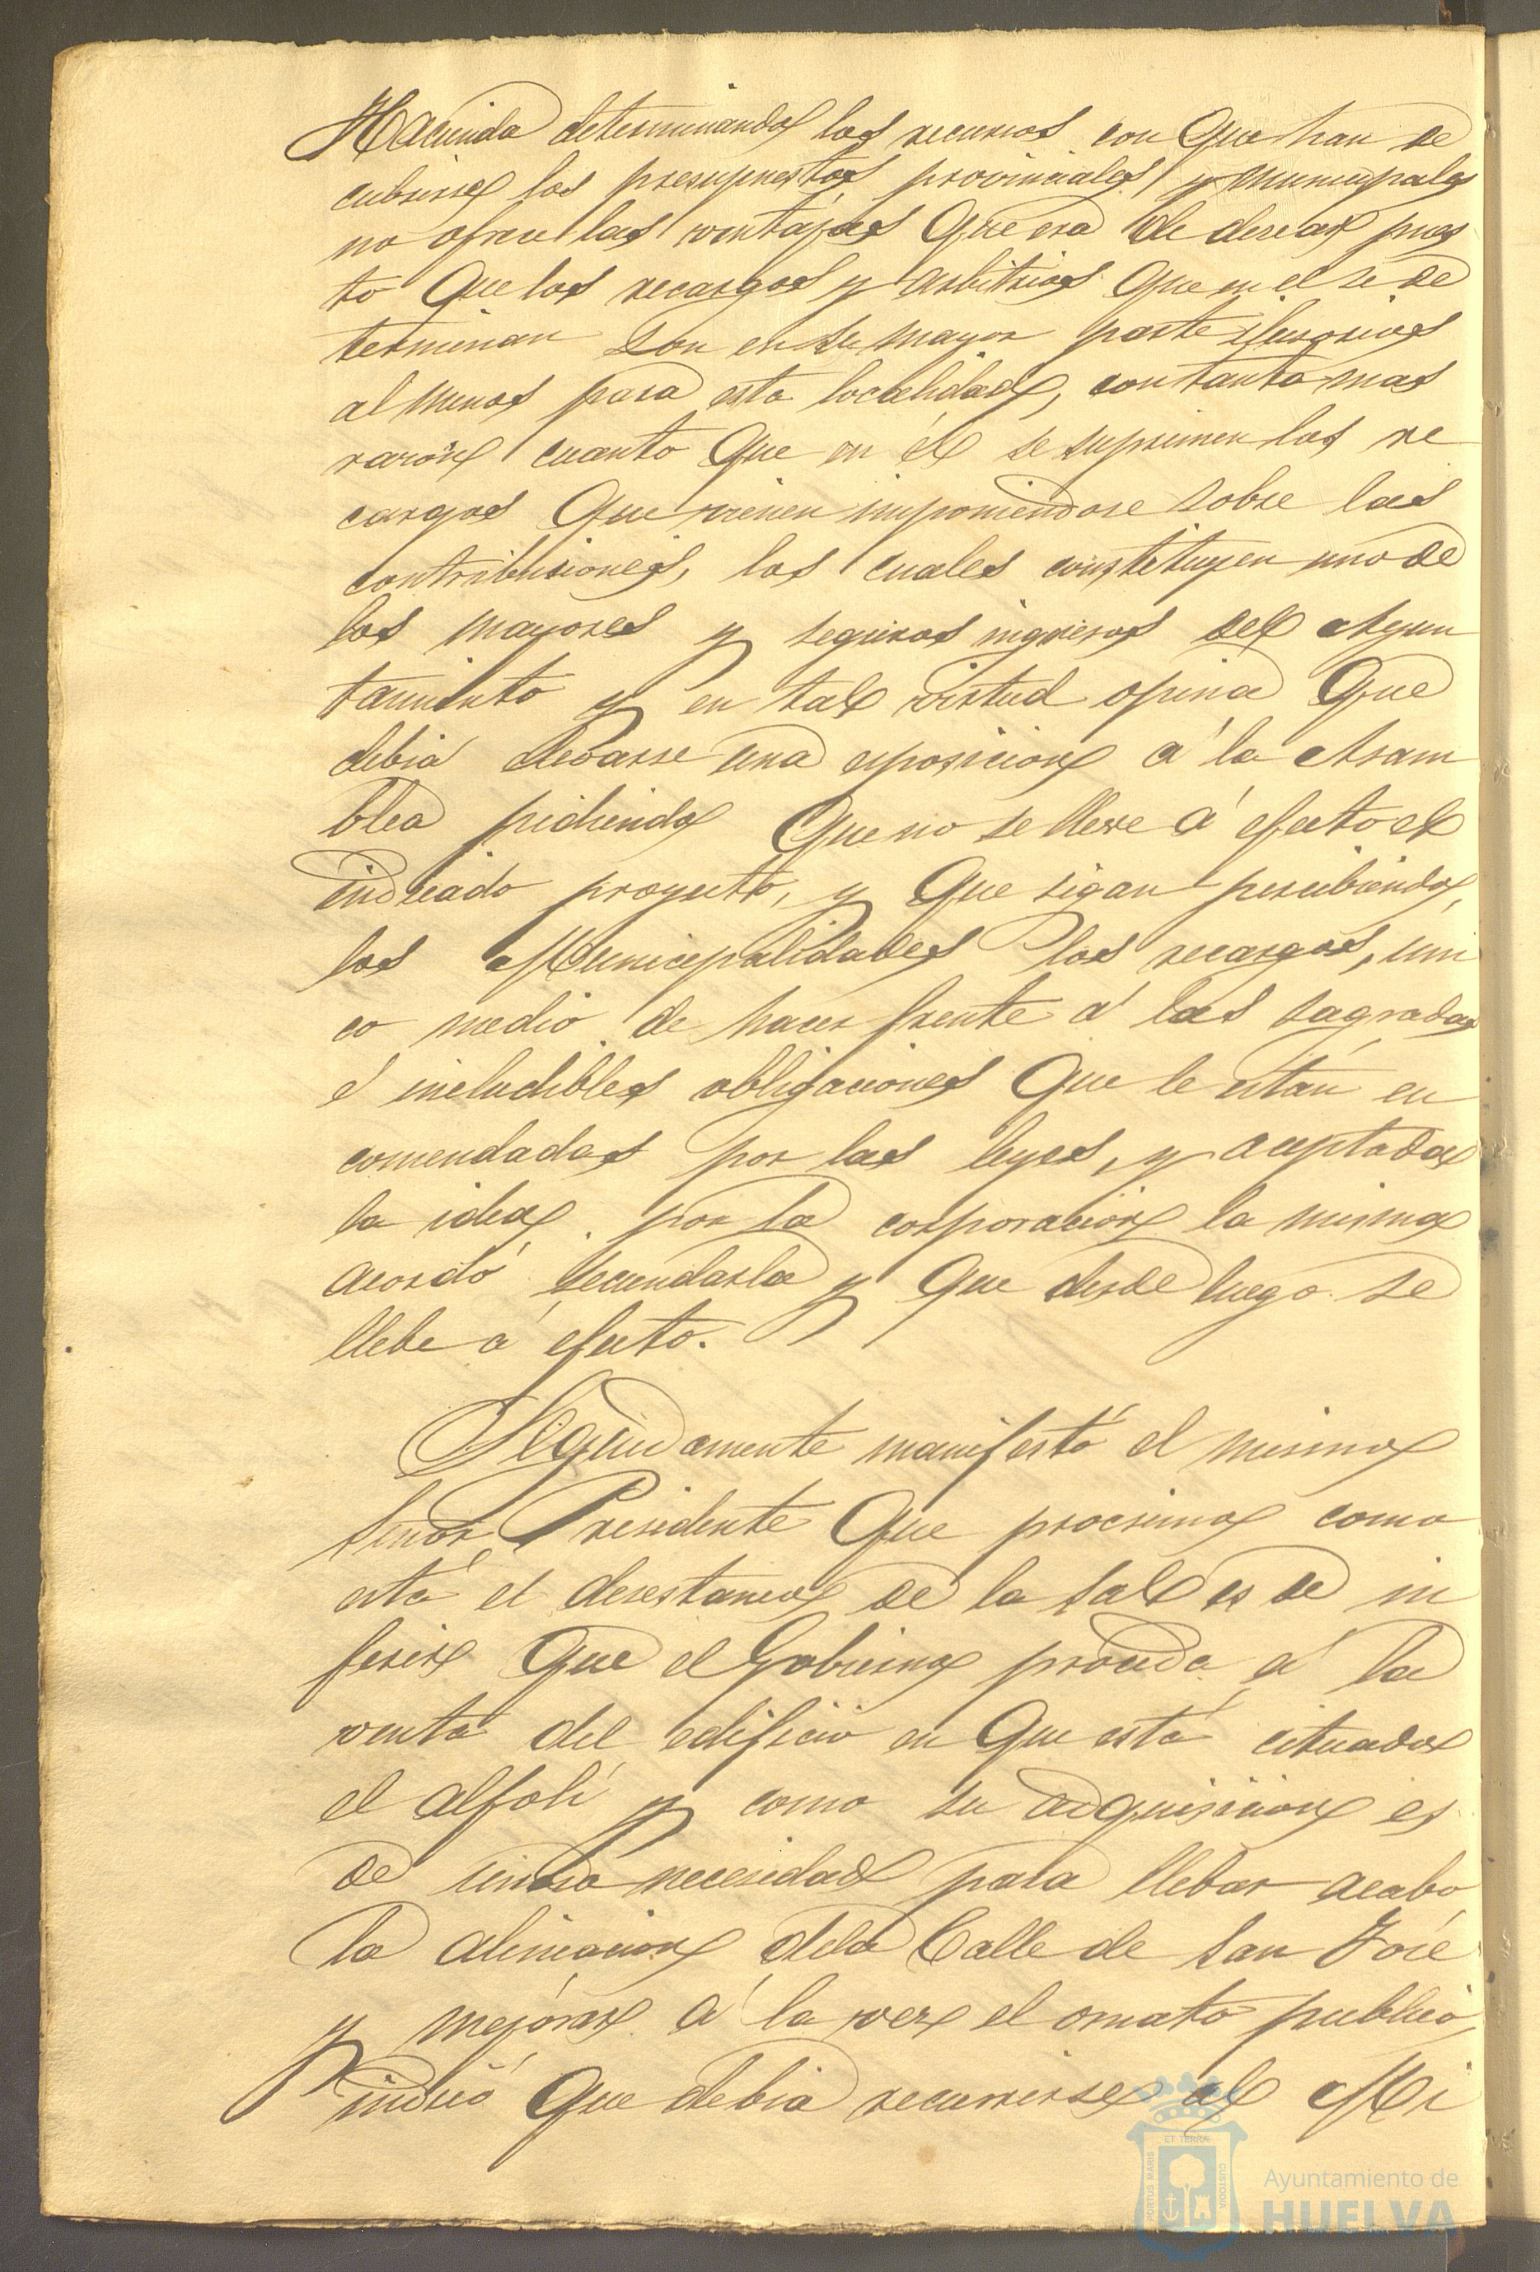 Hacienda determinando los recursos con que han de
cubrirse los presupuestos provinciales y municipales
no ofrece las ventajas que era de desear pues
to que los recargos y arbitrios que en el se de
terminan son en su mayor parte ilusorios
al menos para esta localidad, con tanta mas
razón cuanto que en él se suprimen los re
cargos que vienen imponiendose sobre las
contribuciones, los cuales constituyen uno de
los mayores y seguros ingresos del Ayun
tamiento y en tal virtud opina que
debia elevarse una esposicion á la Asam
blea pidiendo que no se lleve á efecto el
indicado proyecto, y que sigan percibiendo,
las Municipalidades los recargos, uni
co medio de hacer frente á las sagradas
é ineludibles obligaciones que le están en
comendadas por las leyes, y aceptada
la idea por la corporación la misma
acordó secundarla y que desde luego se
llebe á efecto.
Seguidamente manifestó el mismo
Señor Presidente que procsimo como
está el desestanco de la sal es de in
ferir que el Gobierno proceda á la
venta del edificio en que está cituado
el alfolí y como su adquisicion es
de suma necesidad para llebar acabo
la alineacion dela Calle de San José
y mejorar á la vez el ornato publico,
indicó que debia recurrirse al Mi
ET TERRÆ
PORTUS MARIS
CUSTODIA
Ayuntamiento de
HUELVA